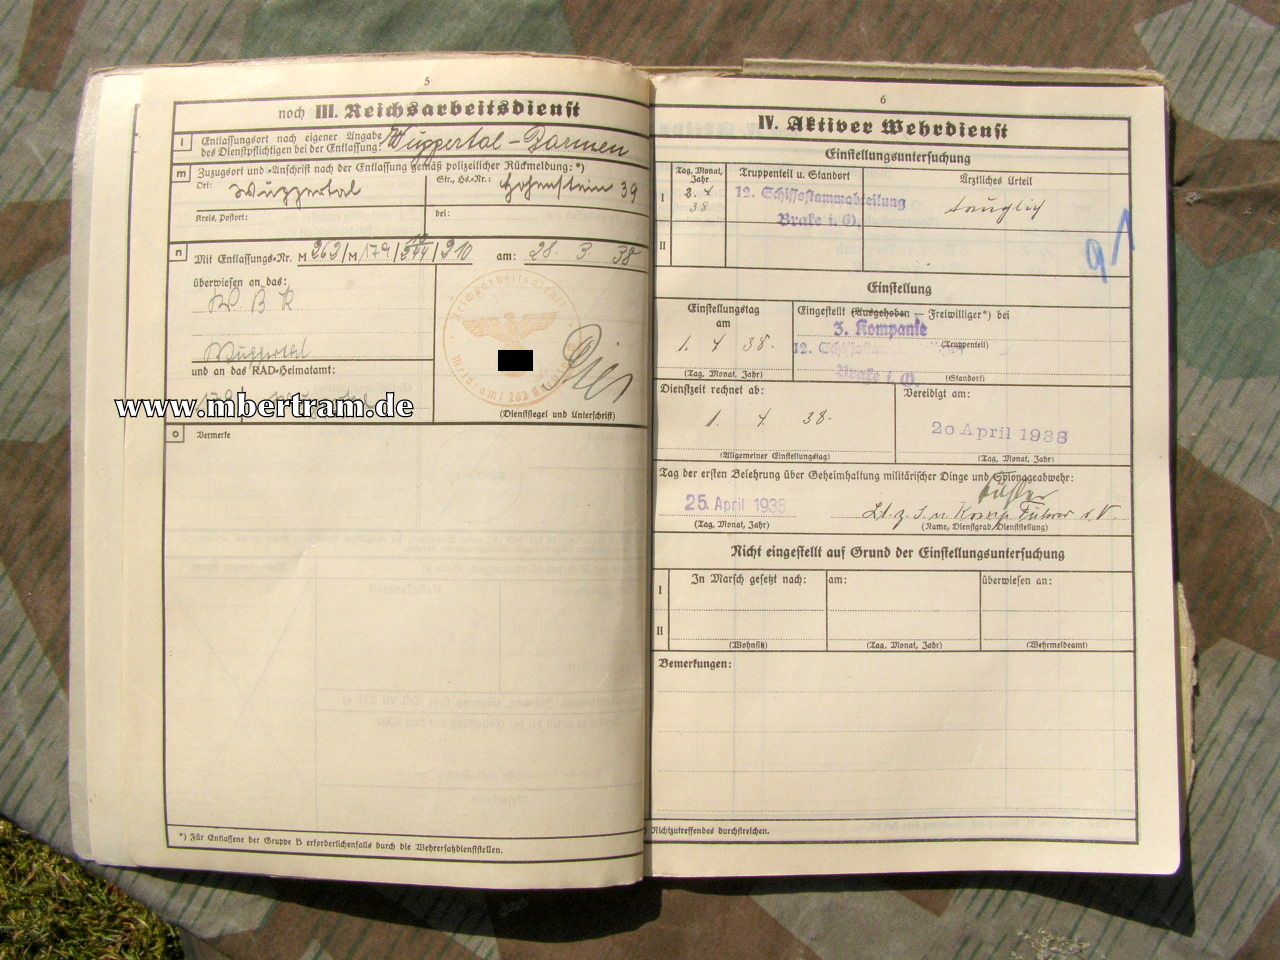 5
noch III. Reichsarbeitsdienst
l
Entlassungsort nach eigener Angabe
des Dienstpflichtigen bei der Entlassung:
Wuppertal-Barmen
m
Zuzugsort und -Anschrift nach der Entlassung gemäß polizeilicher Rückmeldung:*)
Ort: Wuppertal
Str., Hs.-Nr.: Hohenstein 39
Kreis, Postort:
bei:
n
Mit Entlassungs-Nr. M 262/M/179/ /210 am: 28. 3. 38
überwiesen an das:
W B K
Wuppertal
und an das RAD-Heimatamt:
179
Reichsarbeitsdienst
Meldeamt 262
(Dienstsiegel und Unterschrift)
o
Vermerke
*) Für Entlassene der Gruppe B erforderlichenfalls durch die Wehrersatzdienststellen.
www.mbertram.de
6
IV. Aktiver Wehrdienst
Einstellungsuntersuchung
Tag, Monat, Jahr
Truppenteil u. Standort
Ärztliches Urteil
I
2. 4 38
12. Schiffsstammabteilung
Brake i. O.
tauglich
II
Einstellung
Einstellungstag
am
1. 4 38.
(Tag, Monat, Jahr)
Eingestellt (Ausgehoben — Freiwilliger*) bei
3. Kompanie
(Truppenteil)
12.
Brake i. O.
(Standort)
Dienstzeit rechnet ab:
1. 4. 38.
(Allgemeiner Einstellungstag)
Vereidigt am:
20 April 1938
(Tag, Monat, Jahr)
Tag der ersten Belehrung über Geheimhaltung militärischer Dinge und Spionageabwehr:
25. April 1938
(Tag, Monat, Jahr)
Lt. z. S. u. Komp. Führer i. V.
(Name, Dienstgrad, Dienststellung)
Nicht eingestellt auf Grund der Einstellungsuntersuchung
In Marsch gesetzt nach:
am:
überwiesen an:
I
II
(Wohnsitz)
(Tag, Monat, Jahr)
(Wehrmeldeamt)
Bemerkungen:
Nichtzutreffendes durchstreichen.